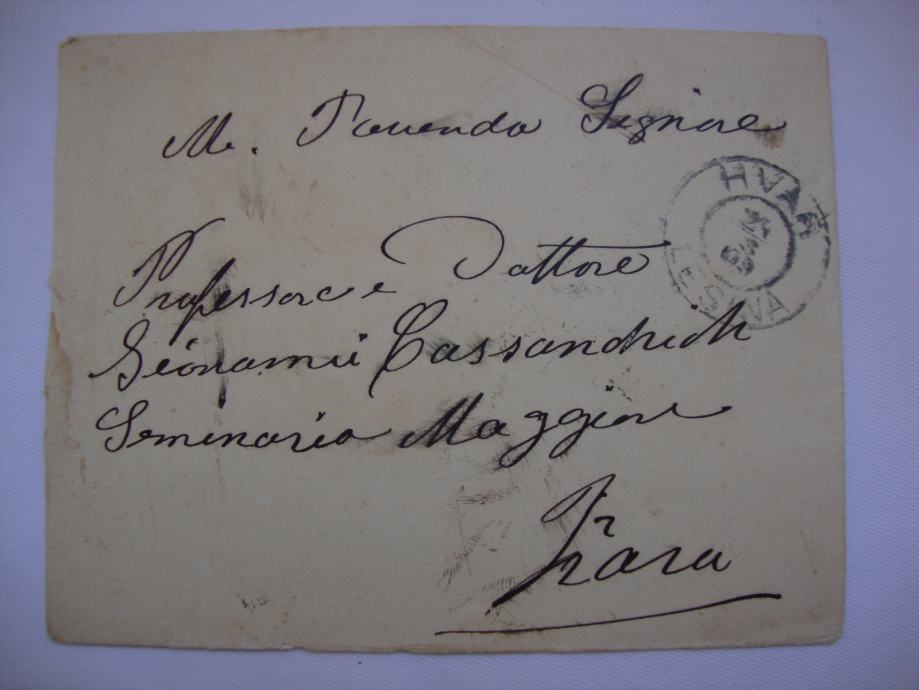 M. Reverendo Signore
Professore e Dottore
Giovanni Cassandrich
Seminario Maggiore
Zara
HVAR
LESINA